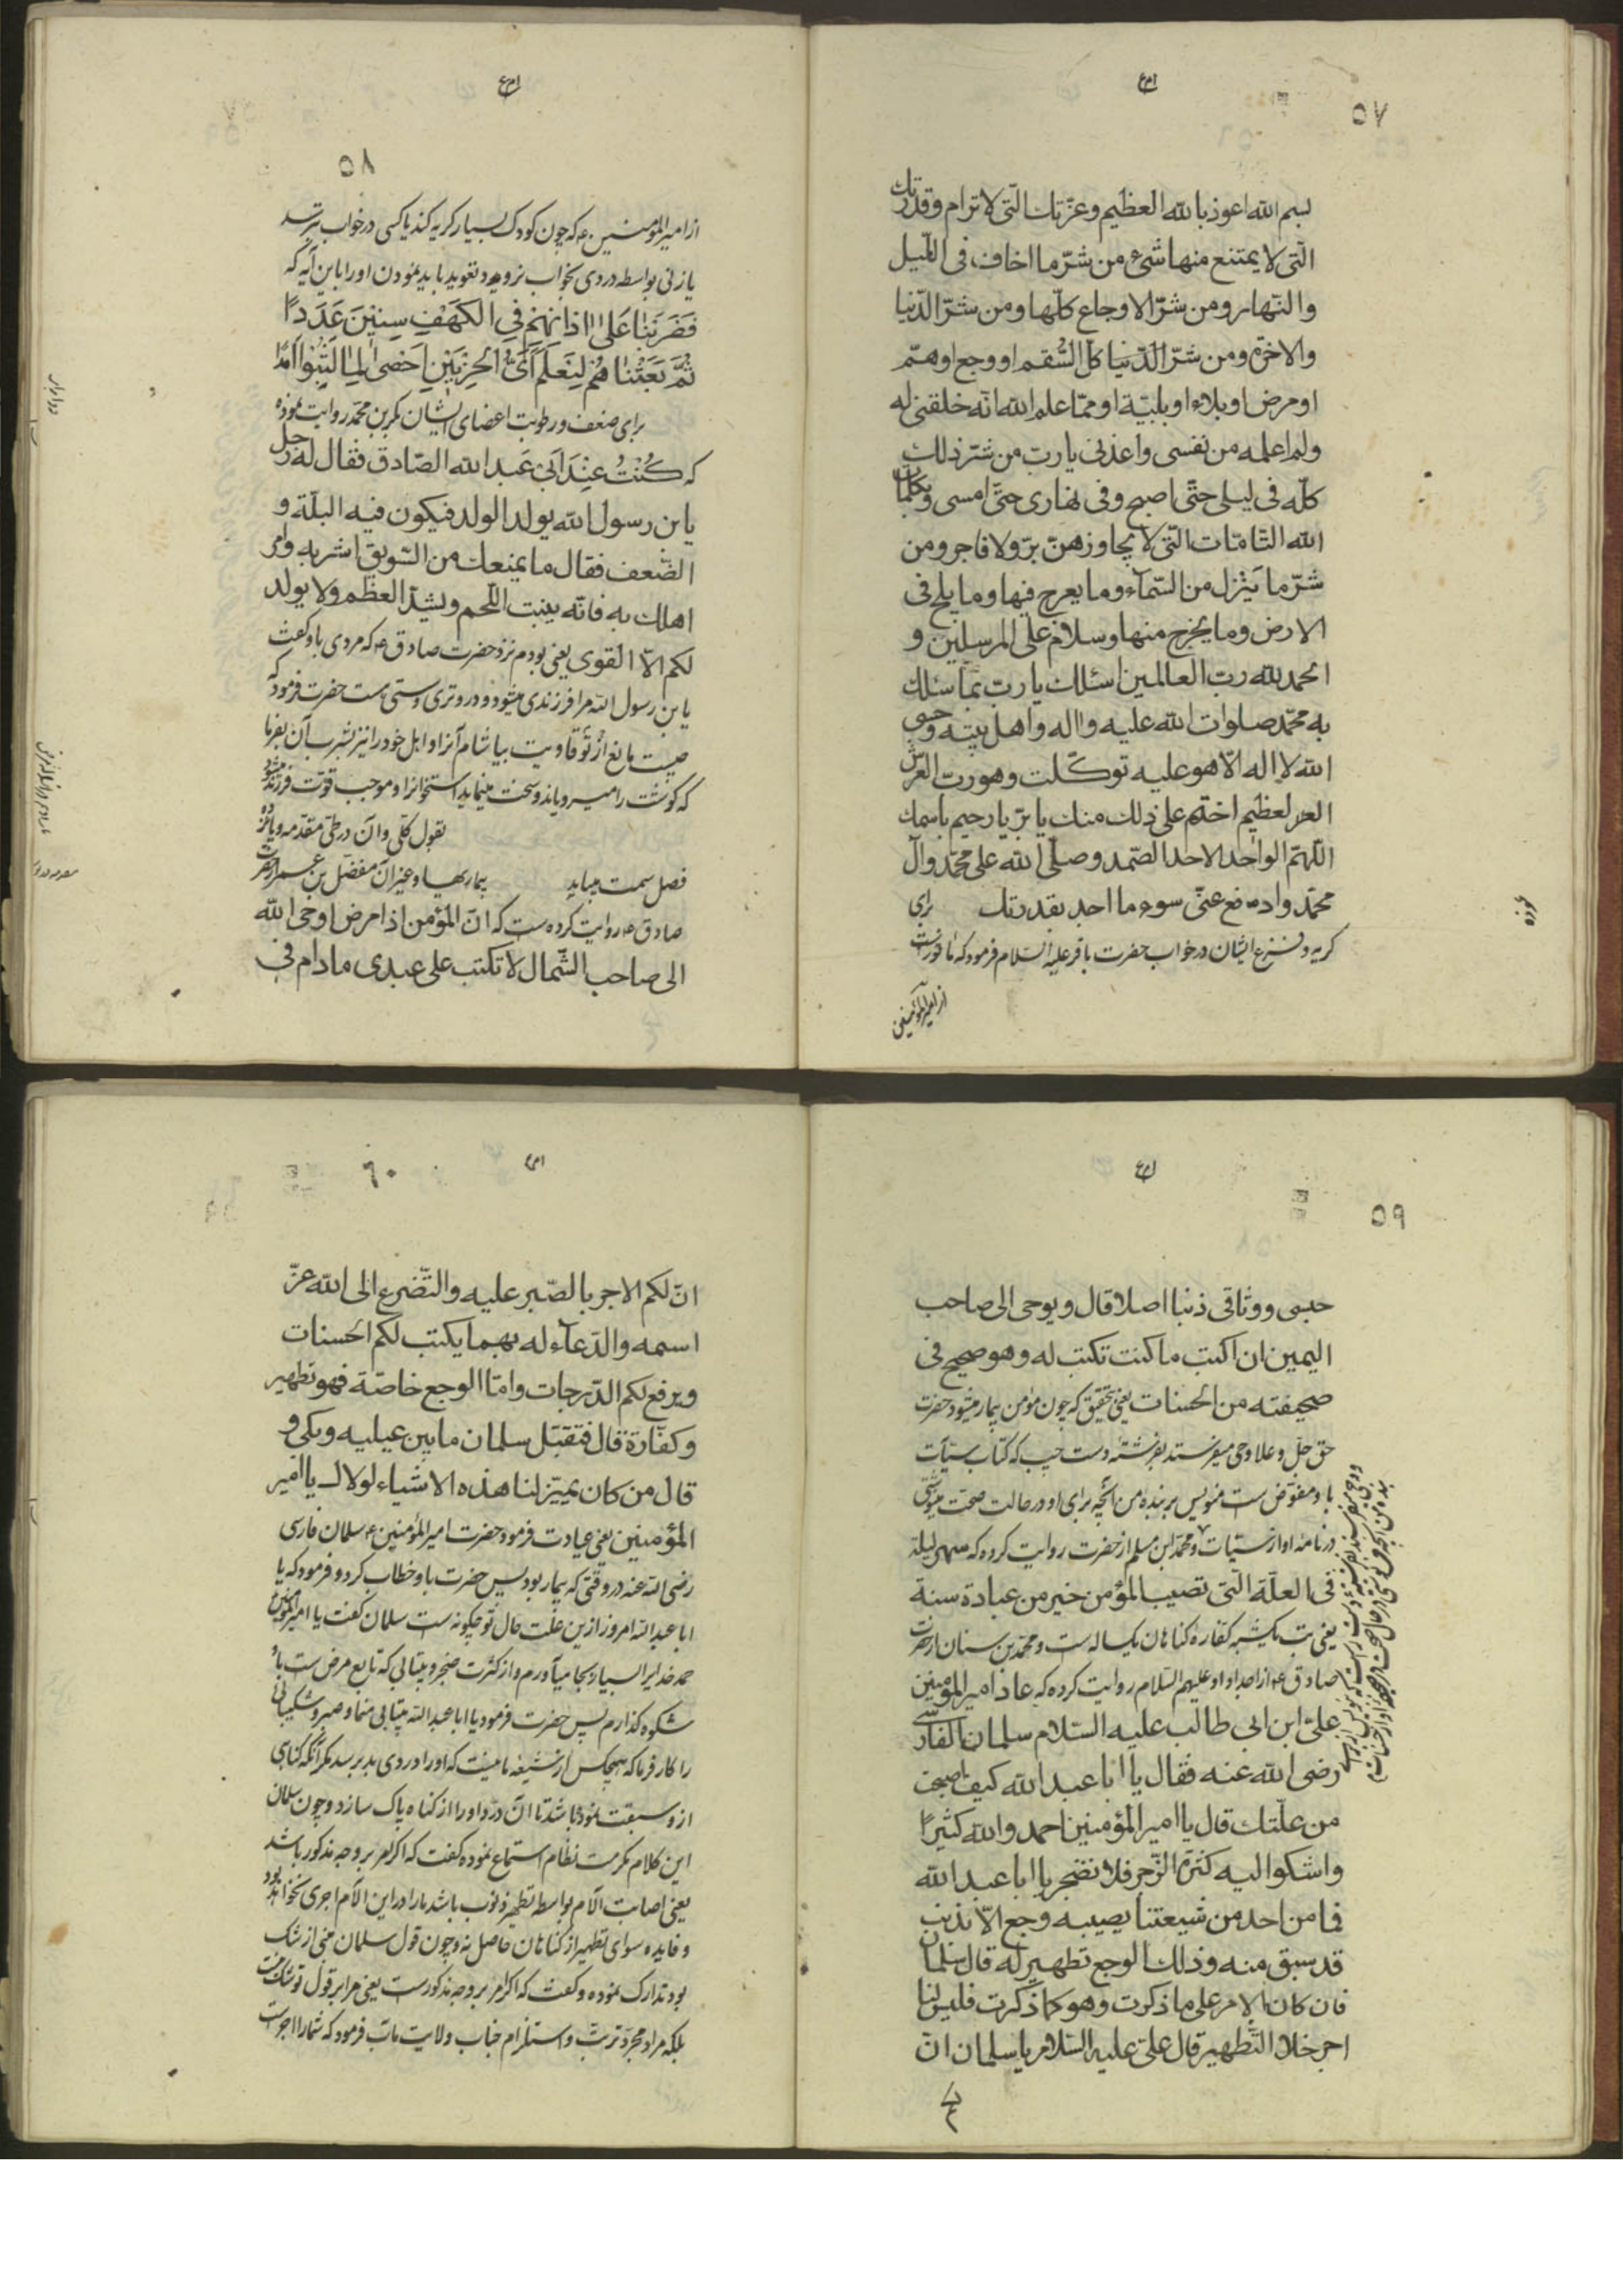 ۵۷
بسم الله اعوذ بالله العظیم وعزّتك التی لا ترام وقدرتك
التی لا یمتنع منها شیء من شرّ ما اخاف فی اللّیل
والنّهار ومن شرّ الاوجاع کلّها ومن شرّ الدّنیا
والاخرة ومن شرّ الدّنیا کلّ السّقم او وجع او همّ
او مرض او بلاء او بلیّة او ممّا علم الله انّه خلقنی له
ولم اعلمه من نفسی واعذنی یا ربّ من شرّ ذلك
کلّه فی لیلی حتّی اصبح وفی نهاری حتّی امسی وبکلمات
الله التّامّات التّی لا یجاوزهنّ برّ ولا فاجر ومن
شرّ ما ینزل من السّماء وما یعرج فیها وما یلج فی
الارض وما یخرج منها وسلام علی المرسلین و
الحمد لله ربّ العالمین اسئلك یا ربّ بما سئلك
به محمّد صلوات الله علیه واله واهل بیته وحسبی
الله لا اله الّا هو علیه توکّلت وهو ربّ العرش
العظیم اختم علی ذلك منك یا برّ یا رحیم باسمك
اللّهمّ الواحد الاحد الصّمد وصلّی الله علی محمّد وآل
محمّد وادفع عنّی سوء ما اجد بقدرتك برای
کریه وفزع ایشان در خواب حضرت باقر علیه السّلام فرمود که ماثورست
از امیرالمؤمنین
۵۸
از امیرالمؤمنین ع که چون کودک بسیار کریه کند یا کسی در خواب ترسد
یا زنی بواسطه دردی بخواب نرود تعوید باید نمودن او را باین آیه که
فَضَرَبْنٰا عَلیٰ اٰذانِهِمْ فِی الْکَهْفِ سِنینَ عَدَدًا
ثُمَّ بَعَثْنٰاهُمْ لِنَعْلَمَ اَیُّ الْحِزْبَیْنِ اَحْصیٰ لِمٰا لَبِثُوا اَمَدًا
برای ضعف ورطوبت اعضای ایشان بکر بن محمّد روایت نموده
که کُنْتُ عِنْدَ اَبی عَبد الله الصّادق فقال له رجل
یابن رسول الله یولد الولد فیکون فیه البلّة و
الضّعف فقال ما یمنعك من السّویق اشربه وامر
اهلك به فانّه ینبت اللّحم ویشدّ العظم ولا یولد
لکم الّا القوی یعنی بودم نزد حضرت صادق ع که مردی باو کفت
یابن رسول الله مرا فرزندی میشود و درو تری وسستی هست حضرت فرمود که
چیست مانع از تو قاویت بیاشام آنرا واهل خود را نیز بشرب آن بفرما
که کوشت را میرویاند وسخت مینماید استخوانرا وموجب قوّت فرزند میشود
بقول کلّی وآن در طیّ مقدّمه ویانزده
فصل سمت میابد بیماریها وغیر آن مفضّل بن عمر از حضرت
صادق ع روایت کرده ست که انّ المؤمن اذا مرض اوحی الله
الی صاحب الشّمال لا تکتب علی عبدی ما دام فی
۵۹
حبسی ووثاقی ذنبا اصلا قال ویوحی الی صاحب
الیمین ان اکتب ما کنت تکتب له وهو صحیح فی
صحیفته من الحسنات یعنی بتحقیق که چون مؤمن بیمار میشود حضرت
حق جلّ وعلا وحی میفرستد بفرشتهٔ دست چپ که کتاب سیّآت
باو مفوّض ست منویس بر بنده من آنچه برای او در حالت صحّت مینوشتی
در نامهٔ او از سیّئات ومحمّد ابن مسلم از حضرت روایت کرده که سهر لیلة
فی العلّة الّتی تصیب المؤمن خیر من عبادة سنة
یعنی تب یکشبه کفّارهٔ کناهان یکساله ست ومحمّد بن سنان از حضرت
صادق ع از اجداد او علیهم السّلام روایت کرده که عاد امیر المؤمنین
علیّ ابن ابی طالب علیه السّلام سلمان الفارسی
رضی الله عنه فقال یا ابا عبد الله کیف اصبحت
من علّتك قال یا امیر المؤمنین احمد والله کثیرًا
واشکوا الیه کثرة الزّجر فلا تضجر یا ابا عبد الله
فما من احد من شیعتنا یصیبه وجع الّا بذنب
قد سبق منه وذلك الوجع تطهیر له قال سلمان
فان کان الامر علی ما ذکرت وهو کما ذکرت فلیس لنا
اجر خلا التّطهیر قال علیّ علیه السّلام یا سلمان انّ
۶۰
انّ لکم الاجر بالصّبر علیه والتّضرع الی الله عزّ
اسمه والدّعآء له بهما یکتب لکم الحسنات
ویرفع لکم الدّرجات وامّا الوجع خاصّة فهو تطهیر
وکفّارة قال فتقبّل سلمان ما بین عینیه وبکی و
قال من کان یمیّز لنا هذه الاشیاء لولاك یا امیر
المؤمنین یعنی عیادت فرمود حضرت امیر المؤمنین ع سلمان فارسی
رضی الله عنه در وقتی که بیمار بود پس حضرت باو خطاب کرد وفرمود که یا
ابا عبد الله امروز ازین علّت حال تو چکونه ست سلمان کفت یا امیر المؤمنین
حمد خدایرا بسیار بجا میآورم واز کثرت ضجر وبیتابی که تابع مرض ست باو
شکوه کذارم پس حضرت فرمود یا ابا عبد الله بیتابی منما وصبر وشکیبائی
را کار فرما که هیچکس از شیعهٔ ما نیست که او را دردی بدو برسد مکر آنکه کناهی
ازو سبقت نموده باشد تا آن درد او را از کناه پاک سازد وچون سلمان
این کلام مکرمت نظام استماع نموده کفت که اکر امر بر وجه مذکور باشد
یعنی اصابت آلام بواسطه تطهیر ذنوب باشد ما را در این آلام اجری نخواهد بود
وفایده سوای تطهیر از کناهان حاصل نه وچون قول سلمان مبنی از شک
بود تدارک نموده وکفت که اکر امر بر وجه مذکورست یعنی مرا بر قول تو شک نیست
بلکه مراد مجرّد ترتّب واستلزام جناب ولایت مآب فرمود که شما را اجرست